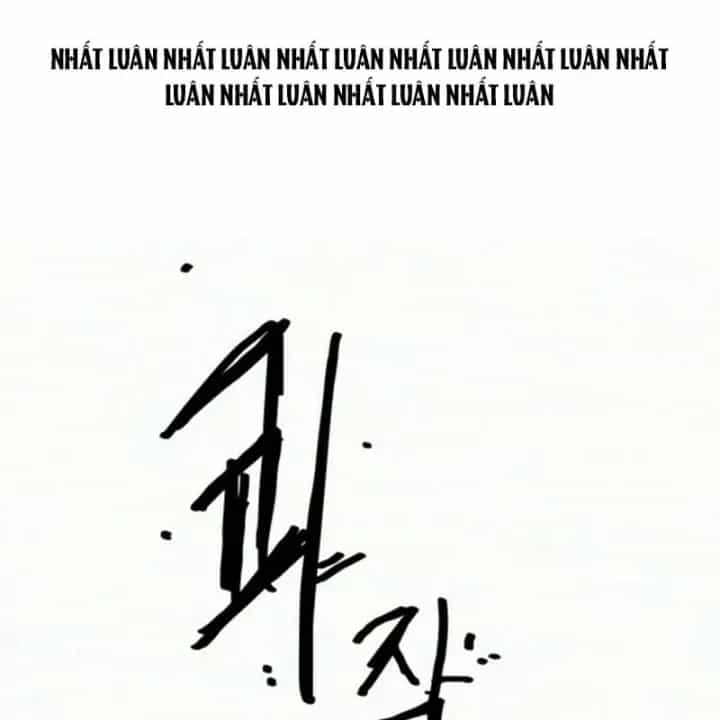 NHẤT LUÂN NHẤT LUÂN NHẤT LUÂN NHẤT LUÂN NHẤT LUÂN NHẤT
LUÂN NHẤT LUÂN NHẤT LUÂN NHẤT LUÂN